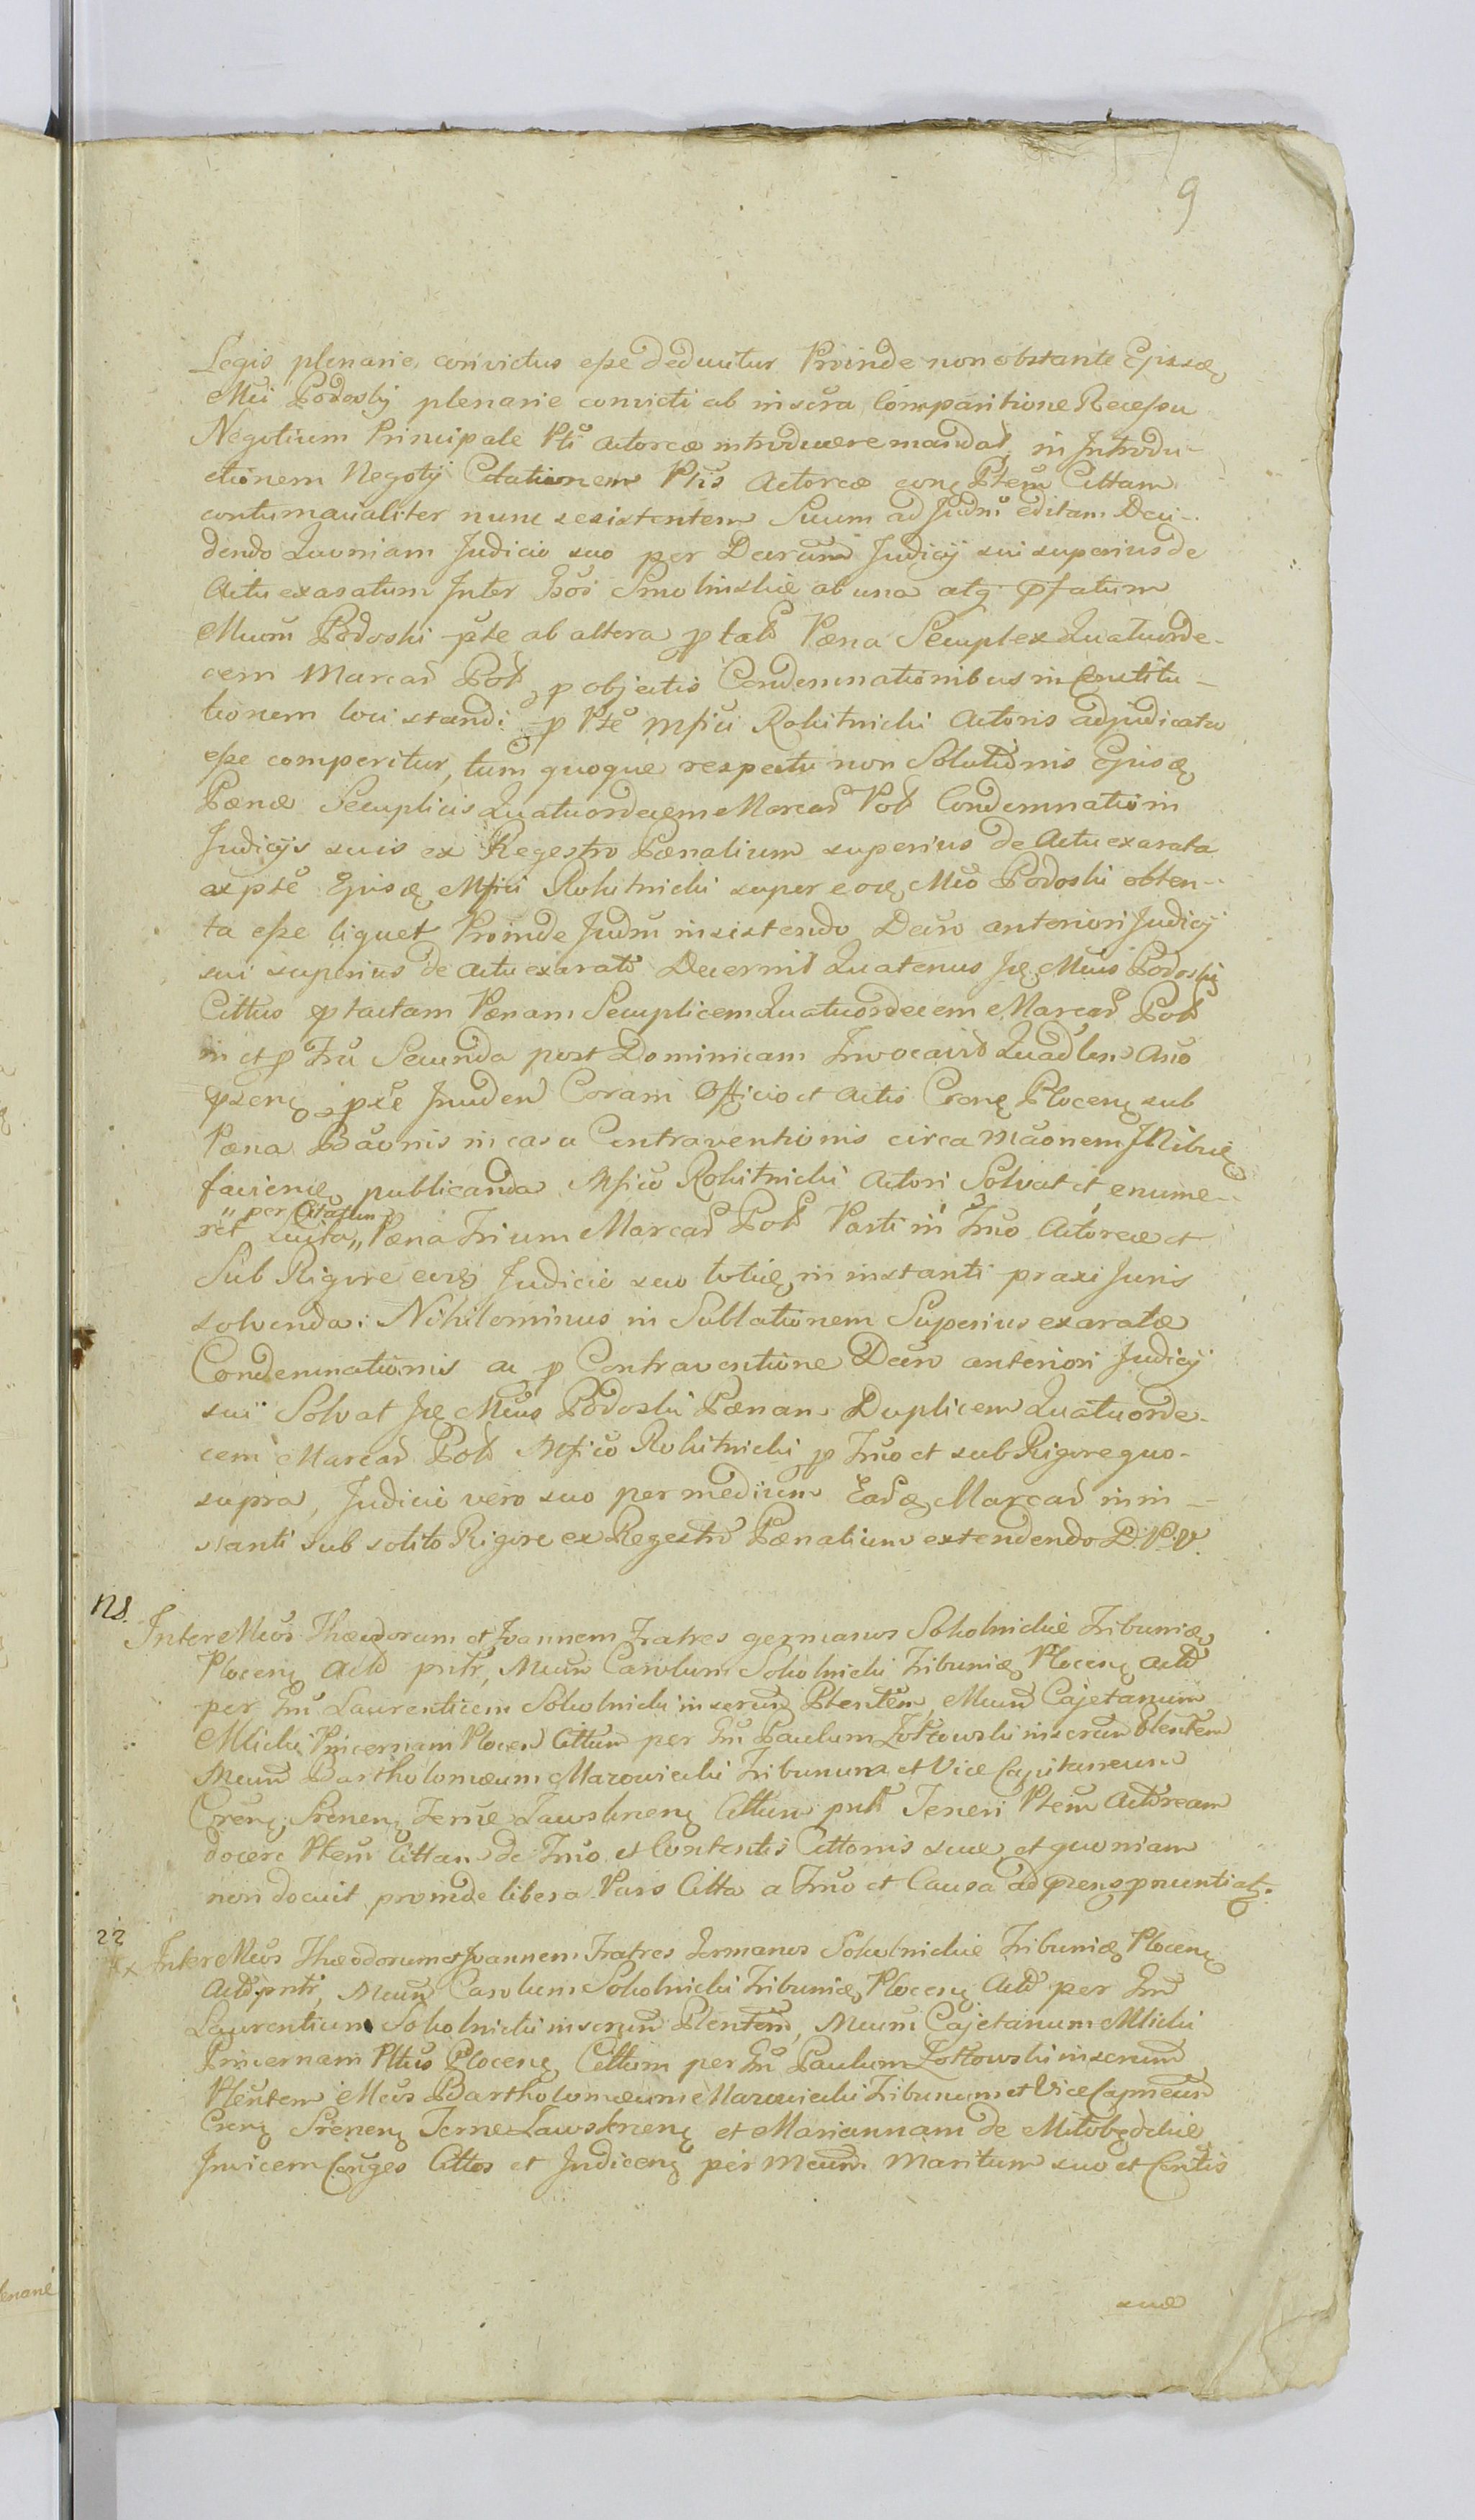 9
Legis plenarie convictus esse deducitur Proinde non obstante Ejusdæ
Mci Podoskij plenarie convicti ab inscra Comparitione Recessu
Negotium Principale Pti Actoreæ introducere mandat, in Introdu-
ctionem Negotij Citationem Ptis Actoreæ con Ptem Cittam
contumacialiter nunc sesistentem Suum ad Judm editam Deci-
dendo Quoniam Judicio suo per Decrum Judicij sui superius de
Actu exaratum Inter Gsos Smolinskie ab una atq pfatum
Mcum Podoski pte ab altera p tali Pæna Semplex Quatuorde-
cem Marcar Pol p objectis Condemnationibus in Constitu-
tionem loci standi p Pte Mfici Rokitnicki Actoris adjudicata
esse comperitur, tum quoque respectu non Solutionis Ejusdæ
Pænæ Semplicis Quatuordecem Marcar Pol Condemnatio in
Judicijs suis ex Regestro Pænalium superius de Actu exarata
ax pte Ejusdæ Mfici Rokitnicki super eod Mco Podoski obten-
ta esse liquet Proinde Judm insistendo Decro anteriori Judicij
sui superius de Actu exarato Decernit Quatenus Ise Mcus Podoski
Cittus ptactam Pænam Semplicem Quatuordecem Marcar Pol
in et p Fru Secunda post Dominicam Invocavit Quadlem Ano
psen pte Inuden Coram Officio et Actis Cren Plocen sub
Pæna Baonis in casu Contraventionis circa Maonem
faciend publicanda Mfico Rokitnicki Actori Solvat et enume-
" per Citatum
ret Luita,, Pæna Trium Marcar Pol Parti in Tmo Actoreæ et
Sub Rigore eod Judicio suo totid in instanti praxi Juris
solvenda: Nihilominus in Sublationem Superius exaratæ
Condemnationis ac p Contraventione Decro anteriori Judicij
sui Solvat Ise Mcus Podoski Pænam Duplicem Quatuorde-
cem Marcar Pol Mfico Rokitnicki p Tmo et sub Rigore quo-
supra, Judicio vero suo per medium Eard Marcar in in-
stanti sub solito Rigore ex Regestro Pænalium extendendo D.P.V.
NS.
Inter Mcos Theodorum et Joannem Fratres germanos Sokolnickie Tribunid
Plocen Acto pntr, Mcum Carolum Sokolnicki Tribunid Plocen Acto
per Gm Laurentium Sokolnicki inscrum Plentem, Mcum Cajetanum
Mlicki Pincernam Plocen Cittum per Gm Paulum Zoltowski inscrum Plentem
Mcum Bartholomæum Mazowiecki Tribunum et Vice Capitaneum
Cren, Srenen Terræ Zawskrnen Cittum pntr Teneri Ptem Actoream
docere Ptem Cittam de Tmo et Contentis Cittonis suæ, et quoniam
non docuit proinde libera Pars Citta a Tmo et Causa ad psens pnuntiatr.
22
Inter Mcos Theodorum et Joannem Fratres Germanos Sokolnickie Tribunid Plocen
Acto pntr, Mcum Carolum Sokolnicki Tribunid Plocen Acto per Gm
Laurentium Sokolnicki inscrum Plentem, Mcum Cajetanum Mlicki
Pincernam Pltus Plocen Cittum per Gm Paulum Zoltowski inscrum
Plentem Mcos Bartholomæum Mazowiecki Tribunum et Vice Capneum
Cren Srenen Terræ Zawskrnen et Mariannam de Milobędzkie
Invicem Conges Cittos et Indicen per Mcum Maritum suo et Contis
suæ